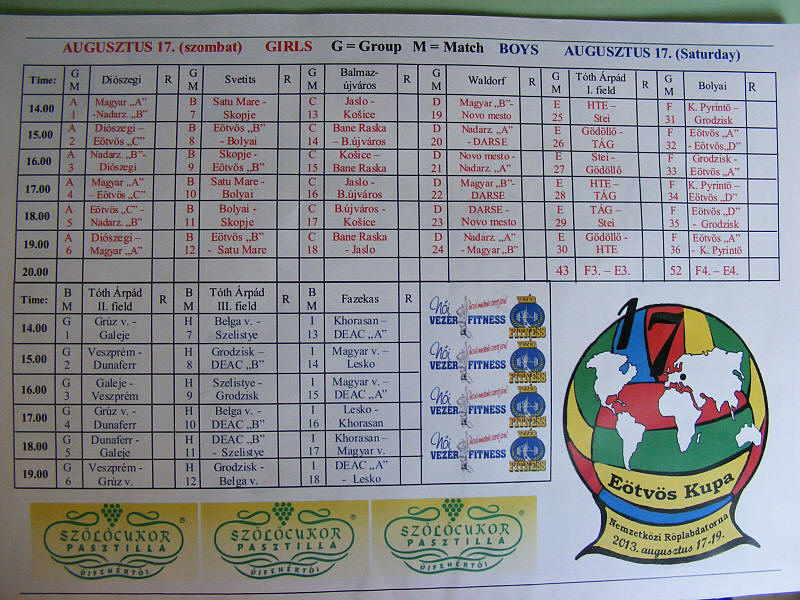 AUGUSZTUS 17. (szombat) GIRLS G = Group M = Match BOYS AUGUSZTUS 17. (Saturday)
Time: G M Diószegi R G M Svetits R G M Balmaz-újváros R G M Waldorf R G M Tóth Árpád I. field R G M Bolyai R
14.00 A 1 Magyar „A” -Nadarz. „B” B 7 Satu Mare - Skopje C 13 Jaslo - Košice D 19 Magyar „B”- Novo mesto E 25 HTE – Stei F 31 K. Pyrintö – Grodzisk
15.00 A 2 Diószegi – Eötvös „C” B 8 Eötvös „B” - Bolyai C 14 Bane Raska – B.újváros D 20 Nadarz. „A” - DARSE E 26 Gödöllő - TÁG F 32 Eötvös „A” - Eötvös „D”
16.00 A 3 Nadarz. „B”- Diószegi B 9 Skopje - Eötvös „B” C 15 Košice – Bane Raska D 21 Novo mesto - Nadarz. „A” E 27 Stei - Gödöllő F 33 Grodzisk - Eötvös „A”
17.00 A 4 Magyar „A” – Eötvös „C” B 10 Satu Mare - Bolyai C 16 Jaslo - B.újváros D 22 Magyar „B”- DARSE E 28 HTE – TÁG F 34 K. Pyrintö – Eötvös „D”
18.00 A 5 Eötvös „C” - Nadarz. „B” B 11 Bolyai - Skopje C 17 B.újváros - Košice D 23 DARSE - Novo mesto E 29 TÁG – Stei F 35 Eötvös „D” - Grodzisk
19.00 A 6 Diószegi – Magyar „A” B 12 Eötvös „B” - Satu Mare C 18 Bane Raska - Jaslo D 24 Nadarz. „A” - Magyar „B” E 30 Gödöllő - HTE F 36 Eötvös „A” - K. Pyrintö
20.00 43 F3. – E3. 52 F4. – E4.
Time: B M Tóth Árpád II. field R B M Tóth Árpád III. field R B M Fazekas R
14.00 G 1 Grúz v. - Galeje H 7 Belga v. - Szelistye I 13 Khorasan – DEAC „A”
15.00 G 2 Veszprém - Dunaferr H 8 Grodzisk – DEAC „B” I 14 Magyar v. – Lesko
16.00 G 3 Galeje - Veszprém H 9 Szelistye - Grodzisk I 15 Magyar v. – DEAC „A”
17.00 G 4 Grúz v. - Dunaferr H 10 Belga v. - DEAC „B” I 16 Lesko - Khorasan
18.00 G 5 Dunaferr - Galeje H 11 DEAC „B” - Szelistye I 17 Khorasan – Magyar v.
19.00 G 6 Veszprém – Grúz v. H 12 Grodzisk - Belga v. I 18 DEAC „A” - Lesko
Női VEZÉR FITNESS VEZÉR FITNESS
Női VEZÉR FITNESS VEZÉR FITNESS
Női VEZÉR FITNESS VEZÉR FITNESS
Női VEZÉR FITNESS VEZÉR FITNESS
17
Eötvös Kupa
Nemzetközi Röplabdatorna
2013. augusztus 17-19.
SZŐLŐCUKOR ® SZŐLŐCUKOR ® SZŐLŐCUKOR ®
PASZTILLA PASZTILLA PASZTILLA
ÚJFEHÉRTÓI ÚJFEHÉRTÓI ÚJFEHÉRTÓI